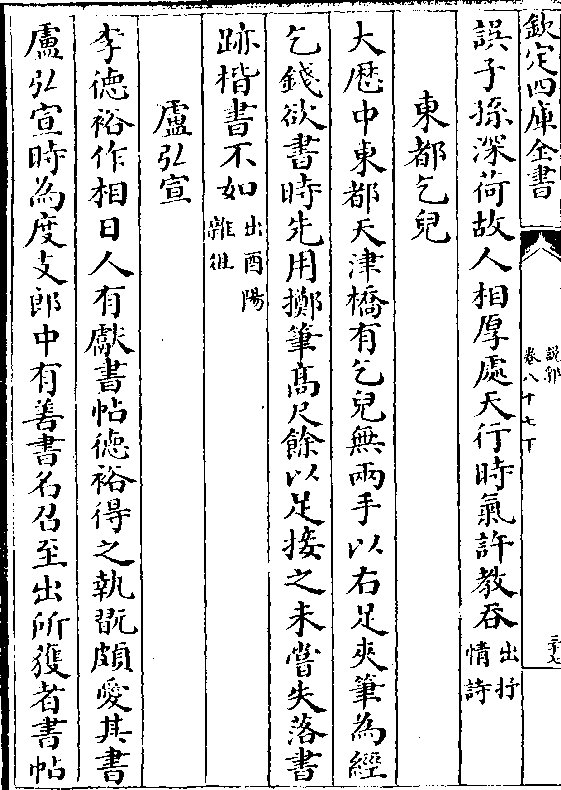 欽定四庫全書
說郛
卷八十七下
三十七
誤子孫深荷故人相厚處天行時氣許教吞出抒
情詩
東都乞兒
大厯中東都天津橋有乞兒無兩手以右足夾筆為經
乞錢欲書時先用擲筆髙尺餘以足接之未嘗失落書
跡楷書不如出酉陽
雜俎
盧弘宣
李德裕作相日人有獻書帖德裕得之執翫頗愛其書
盧弘宣時為度支郎中有善書名召至出所獲者書帖